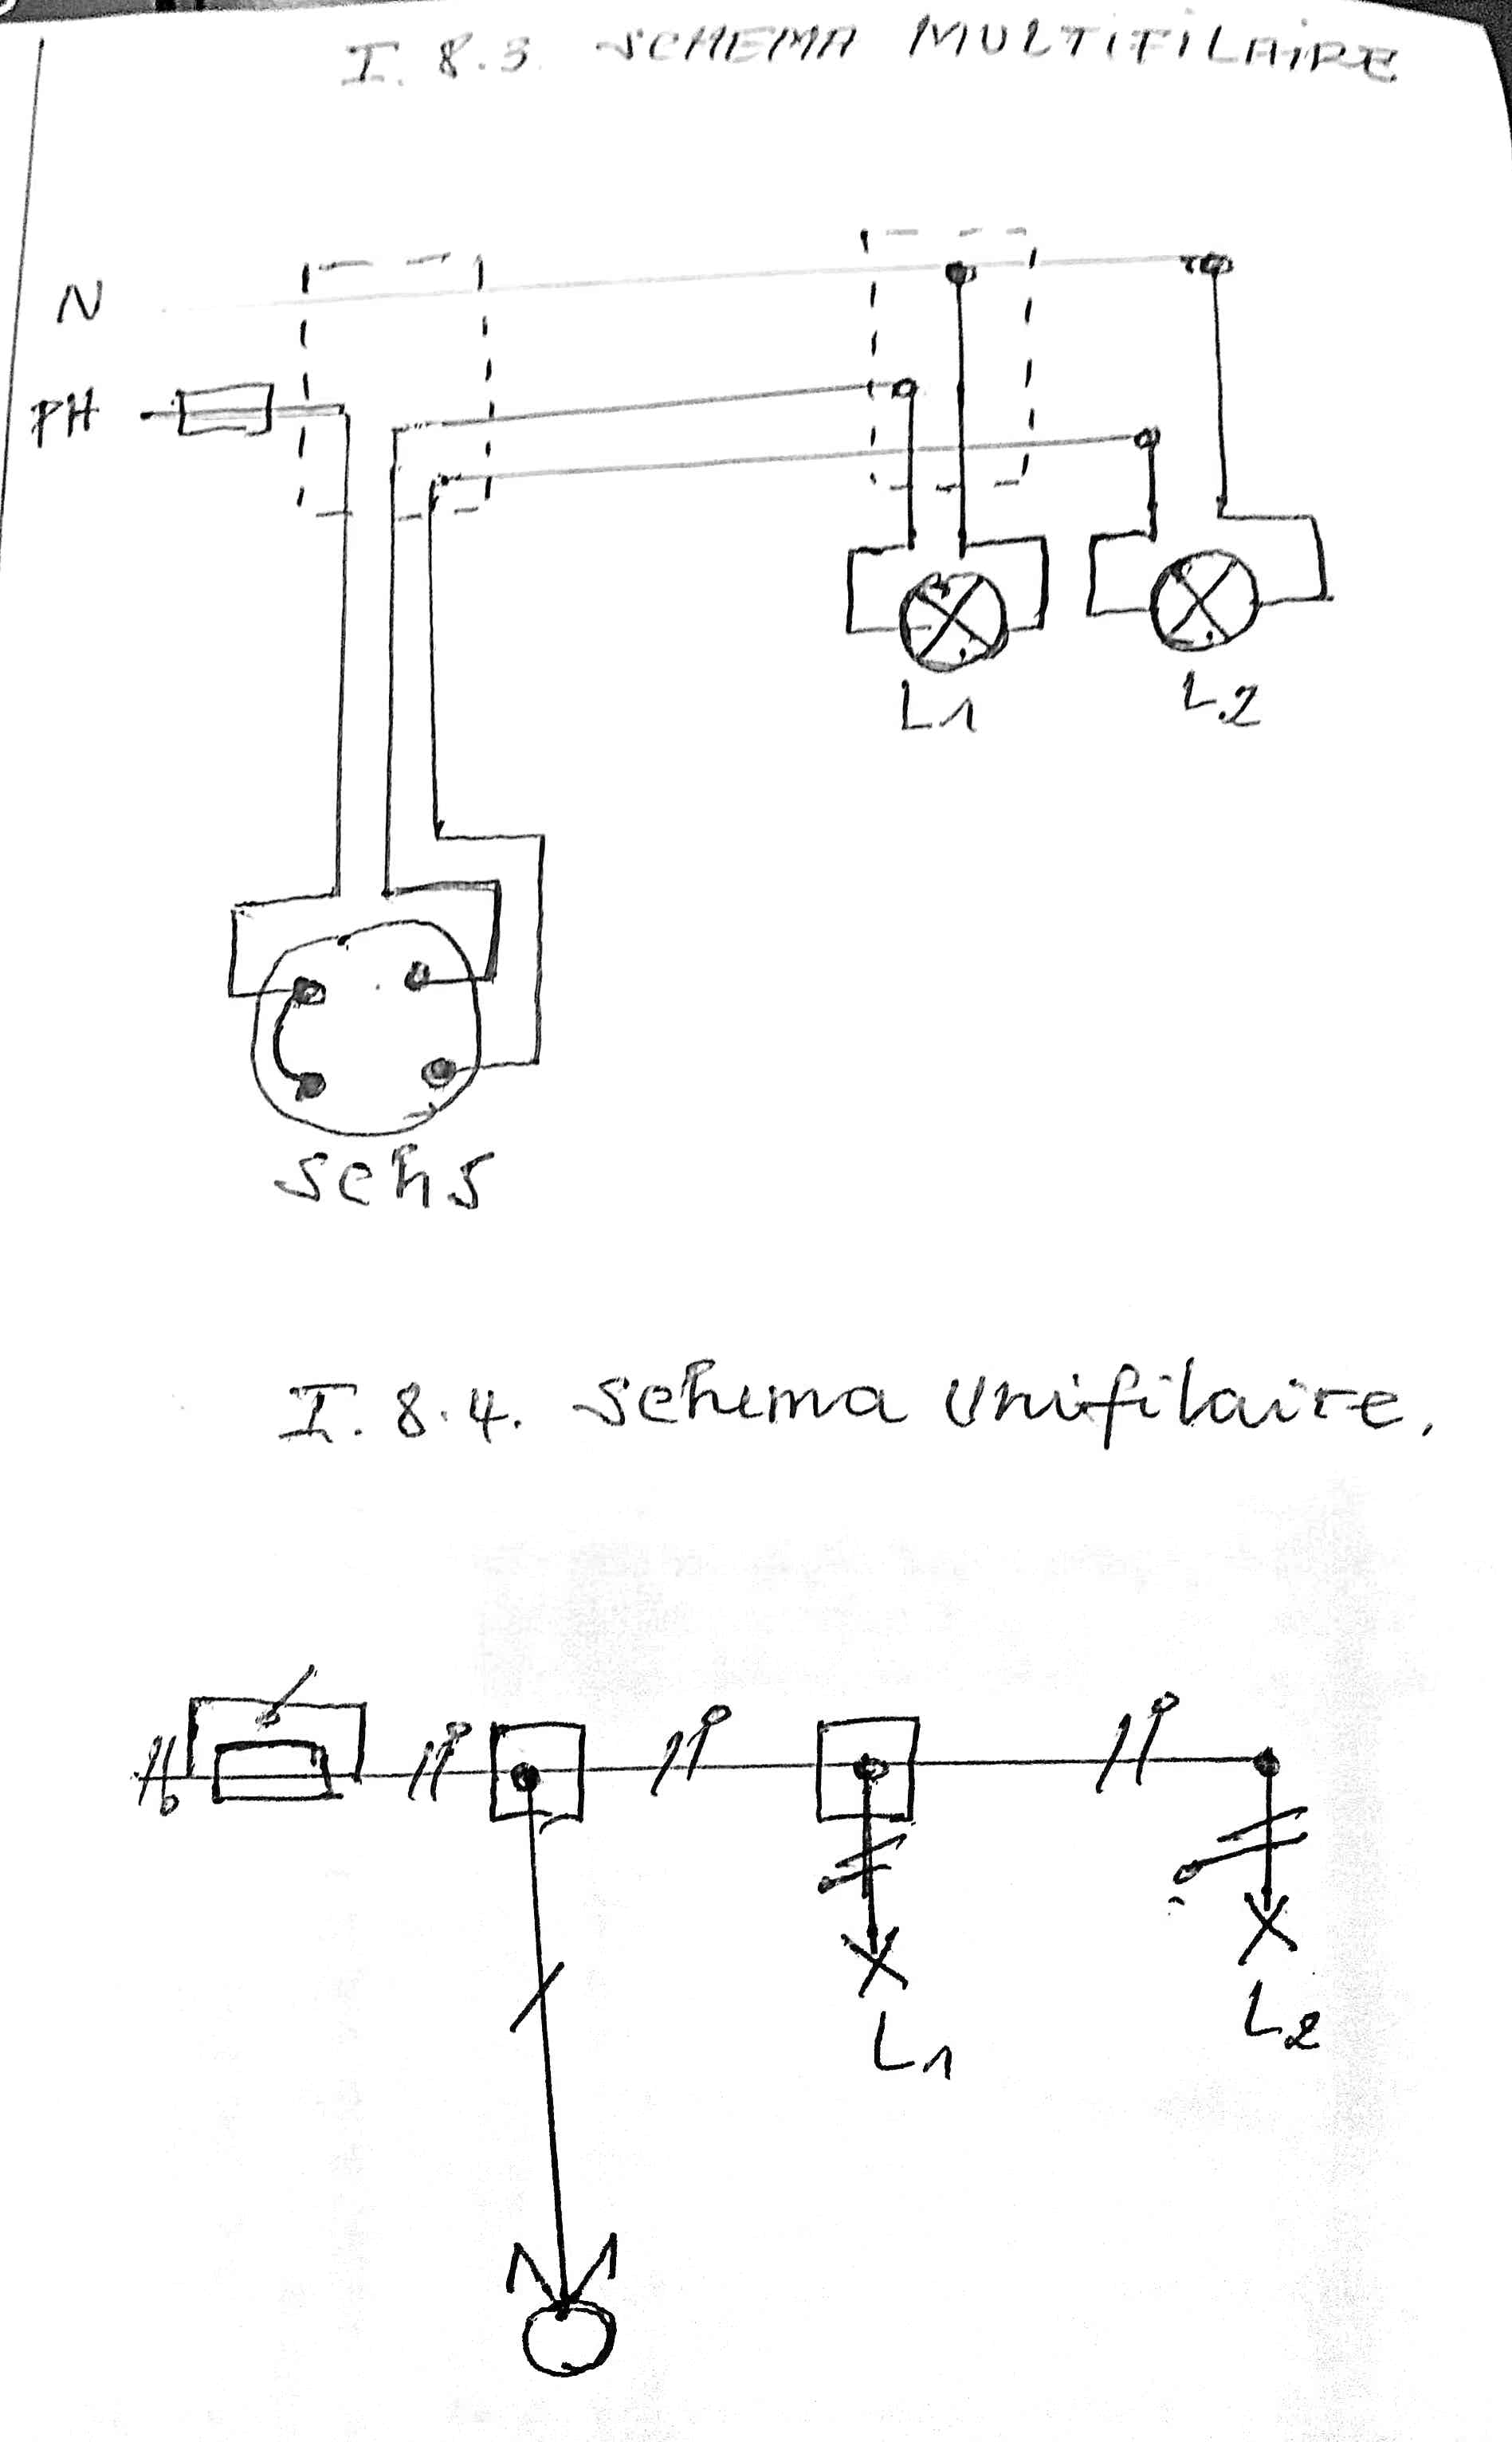 I. 8.3. SCHEMA MULTIFILAIRE
N
PH
L1
L2
Sch5
I. 8.4. Schema Unifilaire.
L1
L2